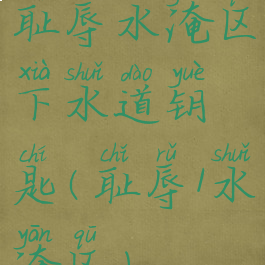 耻辱水淹区
xià shuǐ dào yuè
下水道钥
chí chǐ rǔ shuǐ
匙(耻辱/水
yān qū
淹区)